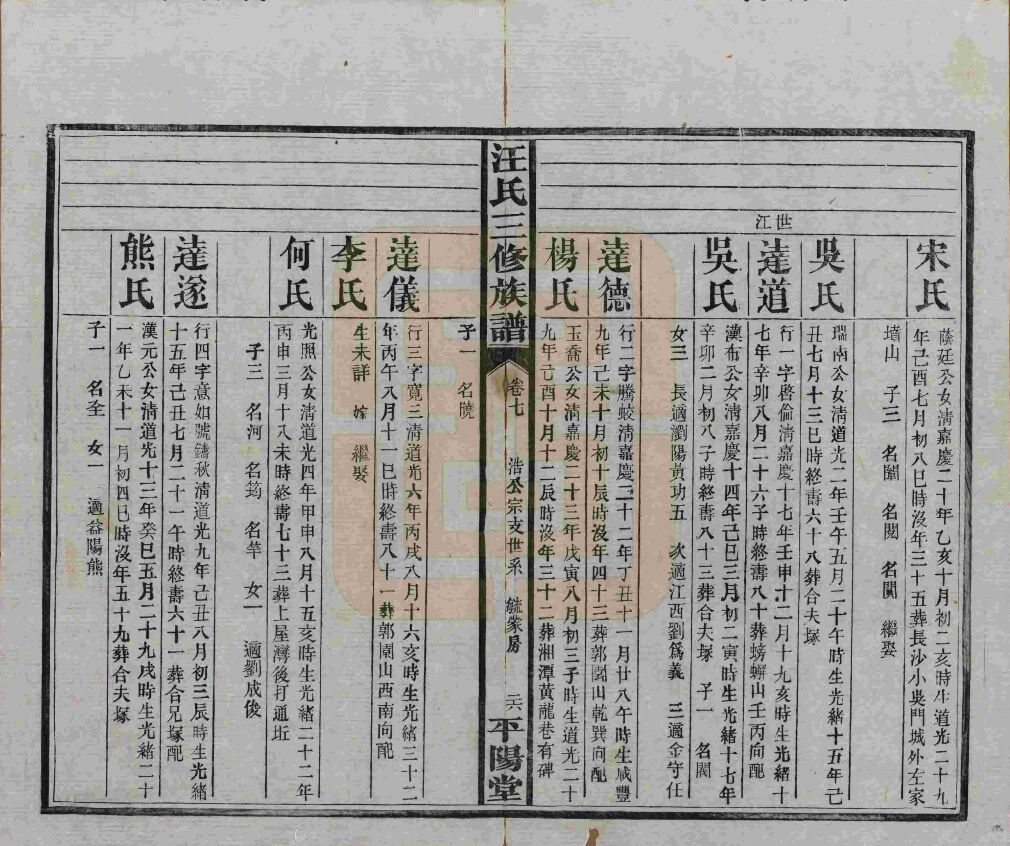 世江
宋氏
蔭廷公女淸嘉慶二十年乙亥十月初二亥時生道光二十九
年己酉七月初八巳時沒年三十五葬長沙小吳門城外左家
墻山 子三 名闓 名閱 名闐 繼娶
吳氏
瑞南公女淸道光二年壬午五月二十午時生光緒十五年己
丑七月十三巳時終壽六十八葬合夫塚
達道
行一字啓倫淸嘉慶十七年壬申十二月十九亥時生光緒十
七年辛卯八月二十六子時終壽八十葬螃蠏山壬丙向配
吳氏
漢布公女淸嘉慶十四年己巳三月初二寅時生光緒十七年
辛卯二月初八子時終壽八十三葬合夫塚 子一 名閡
女三 長適瀏陽黃功五 次適江西劉爲義 三適金守仕
達德
行二字騰蛟淸嘉慶二十二年丁丑十一月廿八午時生咸豐
九年己未十月初十辰時沒年四十三葬郭園山乾巽向配
楊氏
玉喬公女淸嘉慶二十三年戊寅八月初三子時生道光二十
九年己酉十月十二辰時沒年三十二葬湘潭黃龍巷有碑
汪氏三修族譜 卷七 浩公宗支世系 毓蒙房 二六 平陽堂
子一 名曉
達儀
行三字寬三淸道光六年丙戌八月十六亥時生光緒三十二
年丙午八月十一巳時終壽八十一葬郭園山西南向配
李氏
生未詳 嫁 繼娶
何氏
光照公女淸道光四年甲申八月十五亥時生光緒二十二年
丙申三月十八未時終壽七十三葬上屋灣後打通坵
子三 名河 名筠 名竿 女一 適劉成俊
達遂
行四字意如號鑄秋淸道光九年己丑八月初三辰時生光緒
十五年己丑七月二十一午時終壽六十一葬合兄塚配
熊氏
漢元公女淸道光十三年癸巳五月二十九戌時生光緒二十
一年乙未十一月初四巳時沒年五十九葬合夫塚
子一 名至 女一 適益陽熊